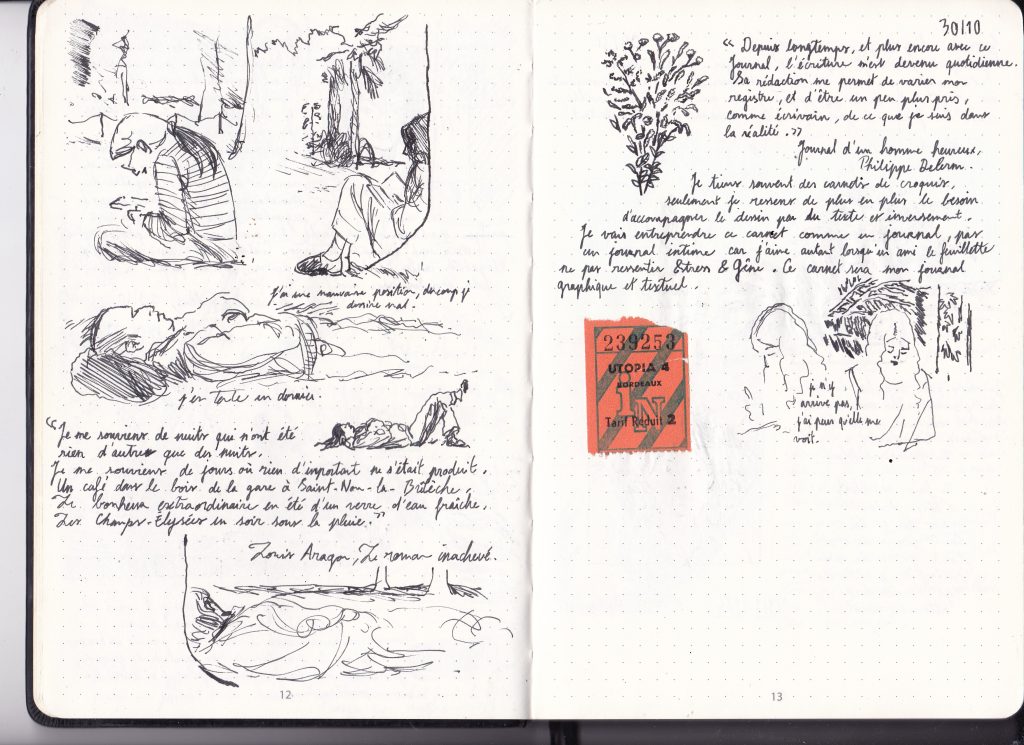 J'ai une mauvaise position, du coup j'
dessine mal.
j'en tente un dernier.
"Je me souviens de nuits qui n'ont été
rien d'autres que des nuits.
Je me souviens de jours où rien d'important ne s'était produit.
Un café dans le bois de la gare à Saint-Nom-la-Bretèche,
Le bonheur extraordinaire en été d'un verre d'eau fraîche,
Les Champs-Elysées un soir sous la pluie."
Louis Aragon, Le roman inachevé.
12
30/10
"Depuis longtemps, et plus encore avec ce
Journal, l'écriture m'est devenue quotidienne.
Sa rédaction me permet de varier mon
registre, et d'être un peu plus près,
comme écrivain, de ce que je suis dans
la réalité."
Journal d'un homme heureux,
Philippe Delerm.
Je tiens souvent des carnets de croquis,
seulement je ressens de plus en plus le besoin
d'accompagner le dessin par du texte et inversement.
Je vais entreprendre ce carnet comme un journal, pas
un journal intime car j'aime autant lorsqu'un ami le feuillette
ne pas ressentir Stress & Gêne. Ce carnet sera mon journal
graphique et textuel.
239253
UTOPIA 4
BORDEAUX
IN
Tarif Réduit 2
je n'y
arrive pas,
j'ai peur qu'elle me
voit.
13